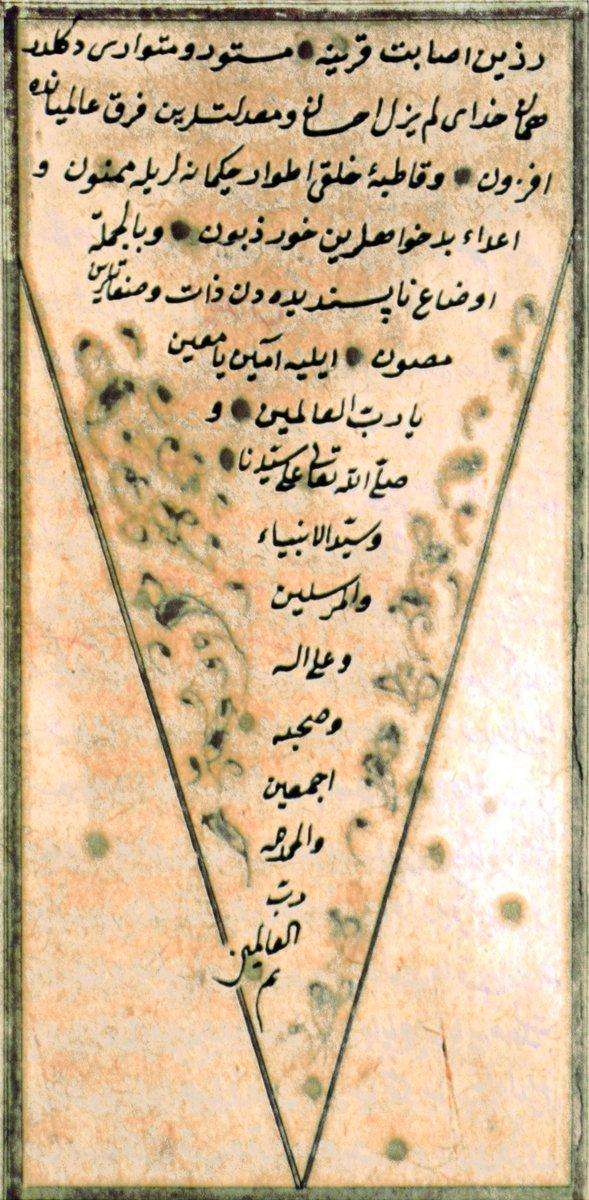 رذین اصابت قرینه • مستور و متواری دکلدر
همان خدای لم یزل احسان و معدلتلرین فرق عالمیانده
افزون • و قاطبۀ خلقی اطوار حکیمانه لریله ممنون و
اعداء بدخواهلرین خور و زبون • و بالجملة
اوضاع ناپسندیده دن ذات
مصون • ایلیه آمین یا معین
یا رب العالمین • و
صلی الله تعالی علی سیدنا •
و سید الانبیاء
والمرسلین
و علی اله
و صحبه
اجمعین
والحمد لله
رب
العالمین
تم